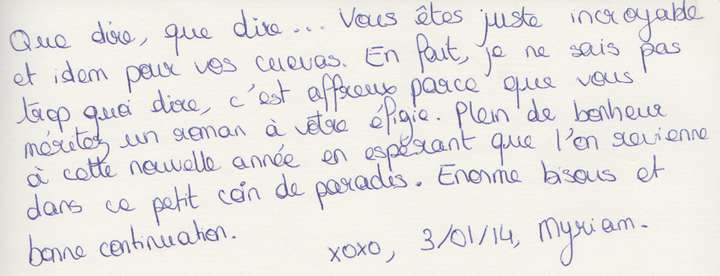 Que dire, que dire... Vous êtes juste incroyable
et idem pour vos cuevas. En fait, je ne sais pas
trop quoi dire, c'est affreux parce que vous
méritez un roman à votre éfigie. Plein de bonheur
à cette nouvelle année en espérant que l'on revienne
dans ce petit coin de paradis. Enorme bisous et
bonne continuation.
xoxo, 3/01/14, Myriam.